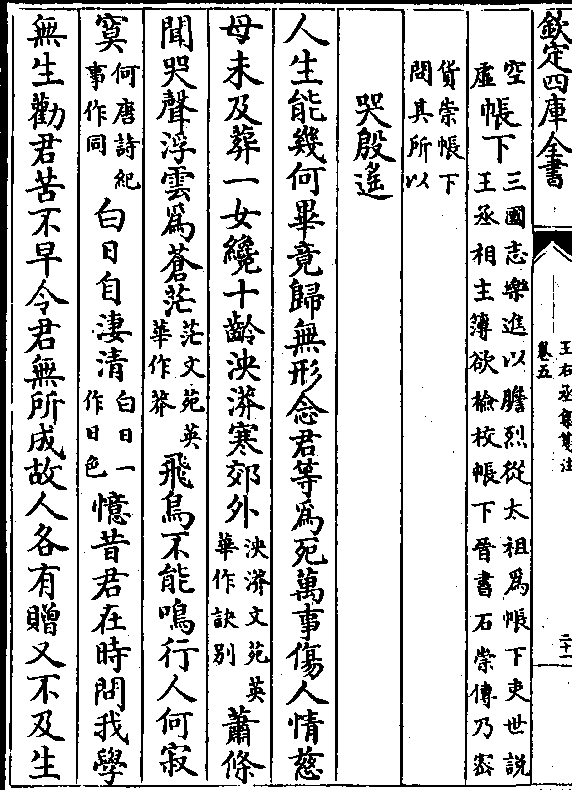 欽定四庫全書
王右丞集箋注
卷五
二十一
空
虛
帳下
三國志樂進以膽烈從太祖爲帳下吏世說
王丞相主簿欲檢校帳下晉書石崇傳乃密
貨崇帳下
問其所以
哭殷遙
人生能幾何畢竟歸無形念君等爲死萬事傷人情慈
母未及葬一女纔十齡泱漭寒郊外
泱漭文苑英
華作訣別
蕭條
聞哭聲浮雲爲蒼茫
茫文苑英
華作莽
飛鳥不能鳴行人何寂
寞
何唐詩紀
事作同
白日自淒清
白日一
作日色
憶昔君在時問我學
無生勸君苦不早令君無所成故人各有贈又不及生